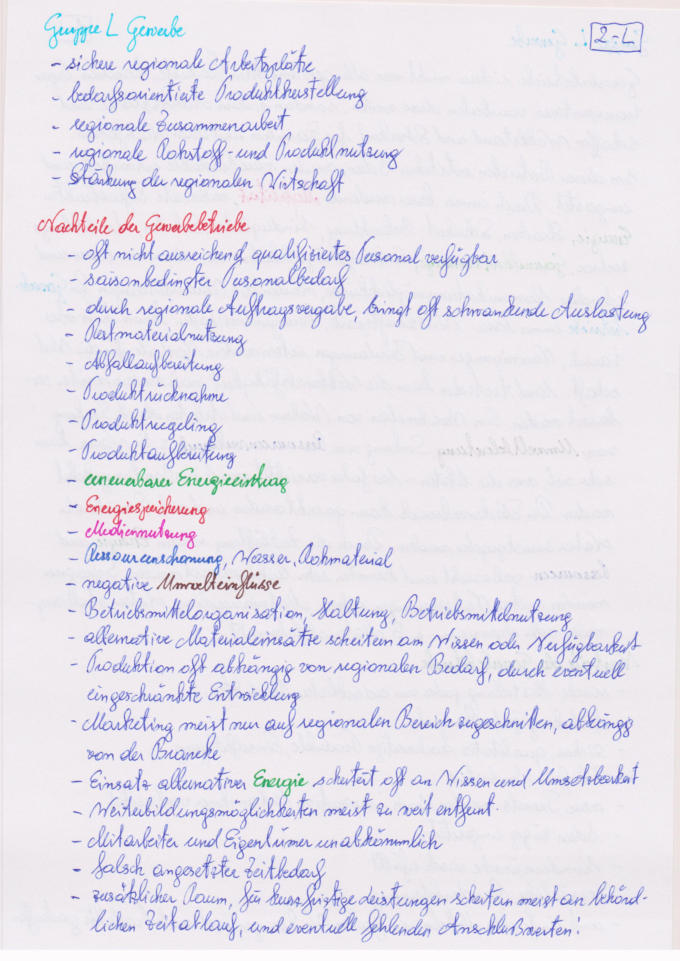 Gruppe L Gewerbe
2-L
- sichere regionale Arbeitsplätze
- bedarfsorientierte Produktherstellung
- regionale Zusammenarbeit
- regionale Rohstoff- und Produktnutzung
- Stärkung der regionalen Wirtschaft
Nachteile der Gewerbebetriebe
- oft nicht ausreichend qualifiziertes Personal verfügbar
- saisonbedingter Personalbedarf
- durch regionale Auftragsvergabe, bringt oft schwandende Auslastung
- Restmaterialnutzung
- Abfallaufbereitung
- Produktrücknahme
- Produktregeling
- Produktaufbereitung
- erneuerbarer Energieeintrag
- Energiespeicherung
- Mediennutzung
- Ressourcenschonung, Wasser, Rohmaterial
- negative Umwelteinflüsse
- Betriebsmittelorganisation, Haltung, Betriebsmittelnutzung
- alternative Materialeinsätze scheitern am Wissen oder Verfügbarkeit
- Produktion oft abhängig von regionalen Bedarf, durch eventuell
eingeschränkte Entwicklung
- Marketing meist nur auf regionalen Bereich zugeschnitten, abhängig
von der Branche
- Einsatz alternativer Energie scheitert oft an Wissen und Umsetzbarkeit
- Weiterbildungsmöglichkeiten meist zu weit entfernt.
- Mitarbeiter und Eigentümer unabkömmlich
- falsch angesetzter Zeitbedarf
- zusätzlicher Raum, für kurzfristige Leistungen scheitern meist an behörd-
lichen Zeitablauf, und eventuell fehlenden Anschlußwerten!